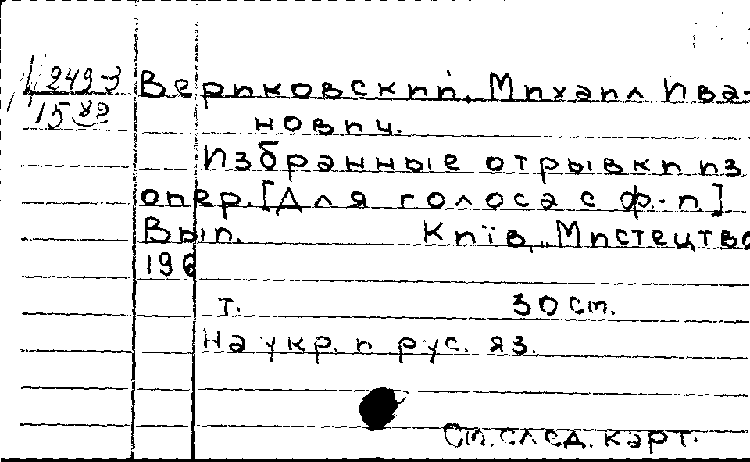 249-3
1589
Вериковский, Михаил Ива-
нович.
Избранные отрывки из
опер. [Для голоса с ф.-п.]
Вып. Київ, „Мистецтво
196
т. 30 см.
На укр. и рус. яз.
См. след. карт.